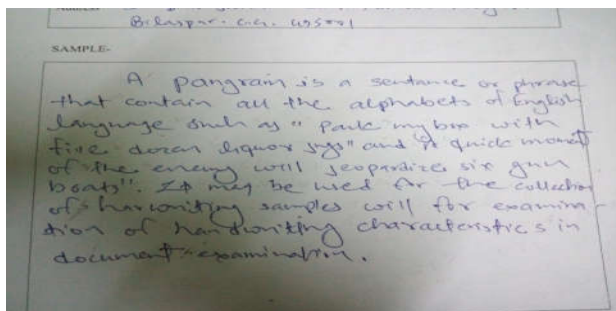 Bilaspur. C.G. 495001
SAMPLE-
A pangram is a sentance or phrase
that contain all the alphabets of English
language such as " Pack my box with
five dozen liquor jugs" and "A quick
of the enemy will jeopardize six gun
boats". It may be used for the collection
of harwriting samples will for examina-
tion of handwriting characteristics in
document examination.